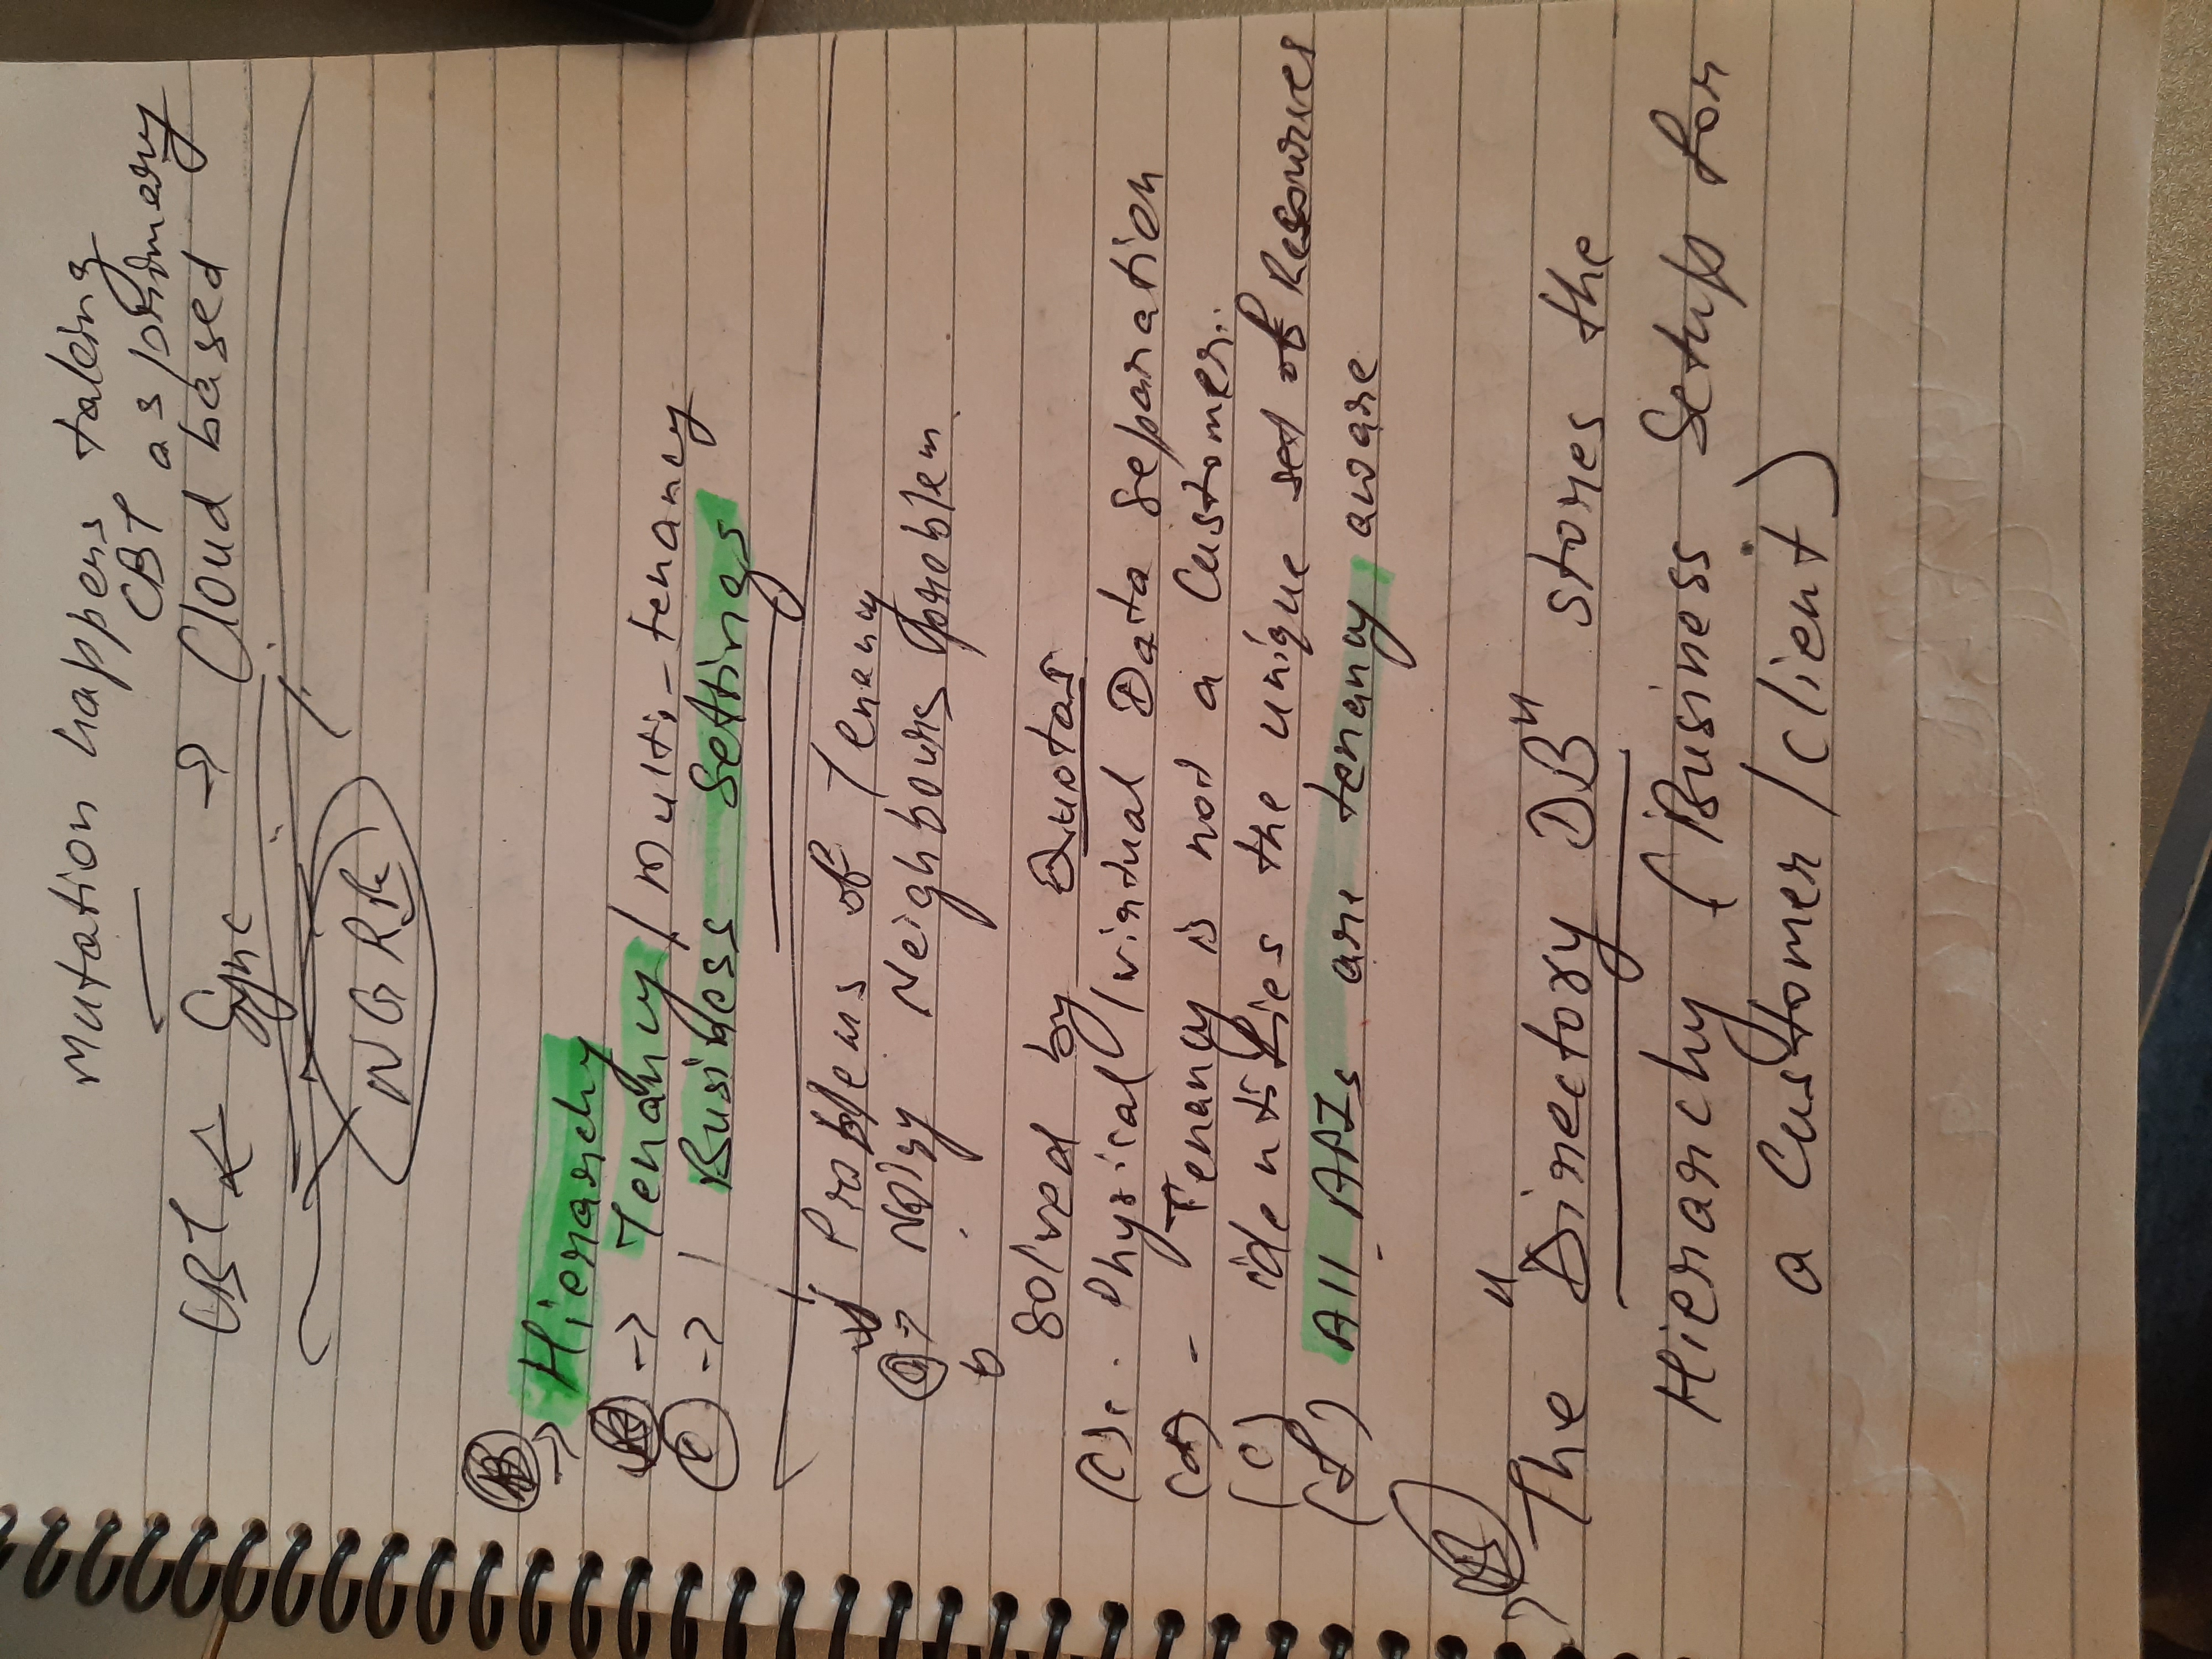 Mutation happens taking
CBT as primary
CBT ← Sync → Cloud based
NGRR
(B)
→ Hierarchy
→ Tenancy / Multi-tenancy
(C) → Business Settings
Problems of Tenancy
(a) → Noisy Neighbours problem.
b
Solved by Quotas
(C) . Physical / virtual Data Separation
(d) - Tenancy is not a Customer..
(e) identifies the unique set of Resources
(f) All APIs are tenancy aware
(B)
→ The "Directory DB" stores the
Hierarchy (Business Setup for
a Customer / client)